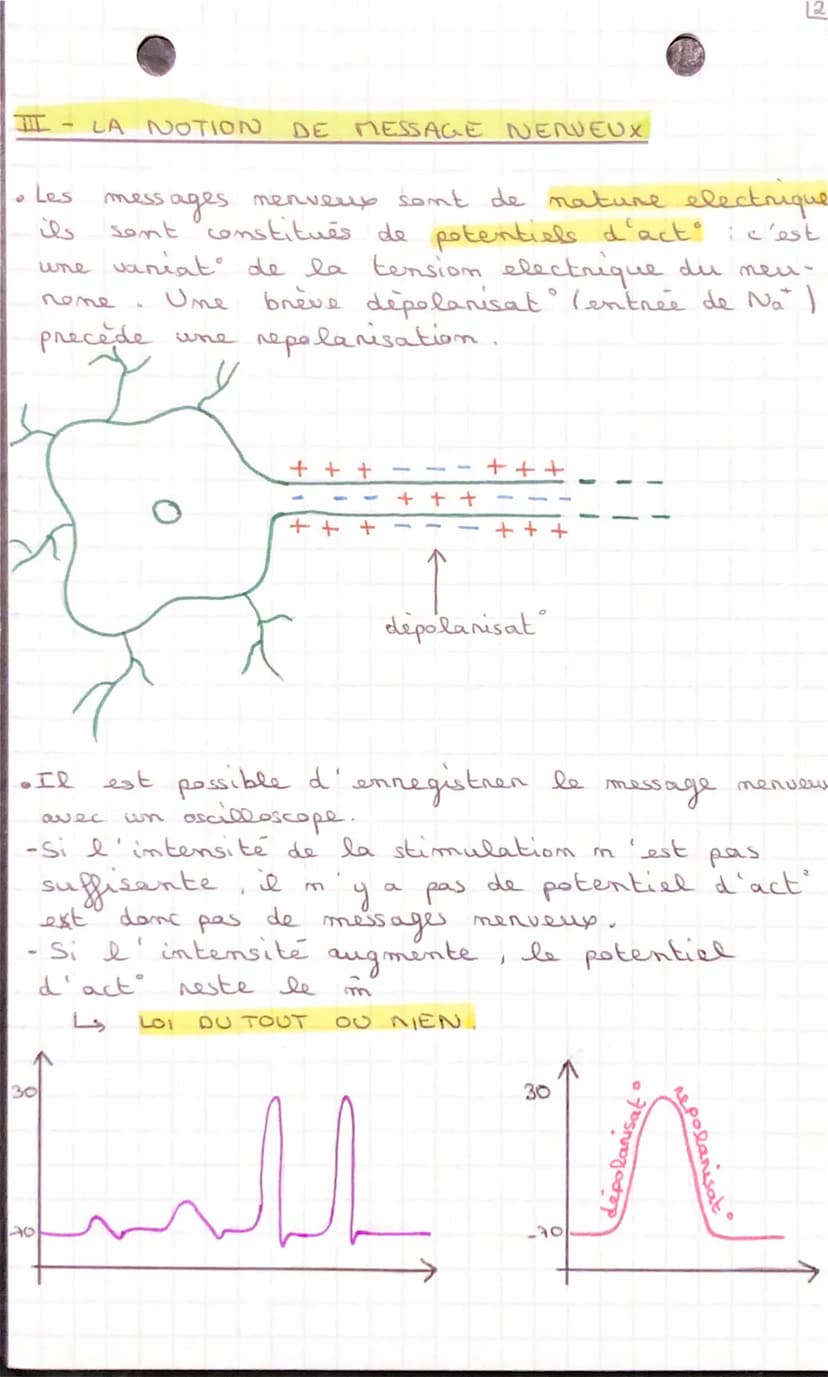 2
III - LA NOTION DE MESSAGE NERVEUX
• Les messages nerveux sont de nature electrique
ils sont constitués de potentiels d'act° : c'est
une variat° de la tension electrique du neu-
rone. Une brève dépolarisat° (entrée de Na+)
precède une repolarisation.
+ + + - - - + + +
- - - + + + - - -
+ + + - - - + + +
dépolarisat°
• Il est possible d'enregistrer le message nerveux
avec un oscilloscope.
- Si l'intensité de la stimulation n'est pas
suffisante, il n'y a pas de potentiel d'act°
et donc pas de messages nerveux.
- Si l'intensité augmente, le potentiel
d'act° reste le m̂
↳ LOI DU TOUT OU RIEN.
30
-70
30
-70
dépolarisat°
repolarisat°